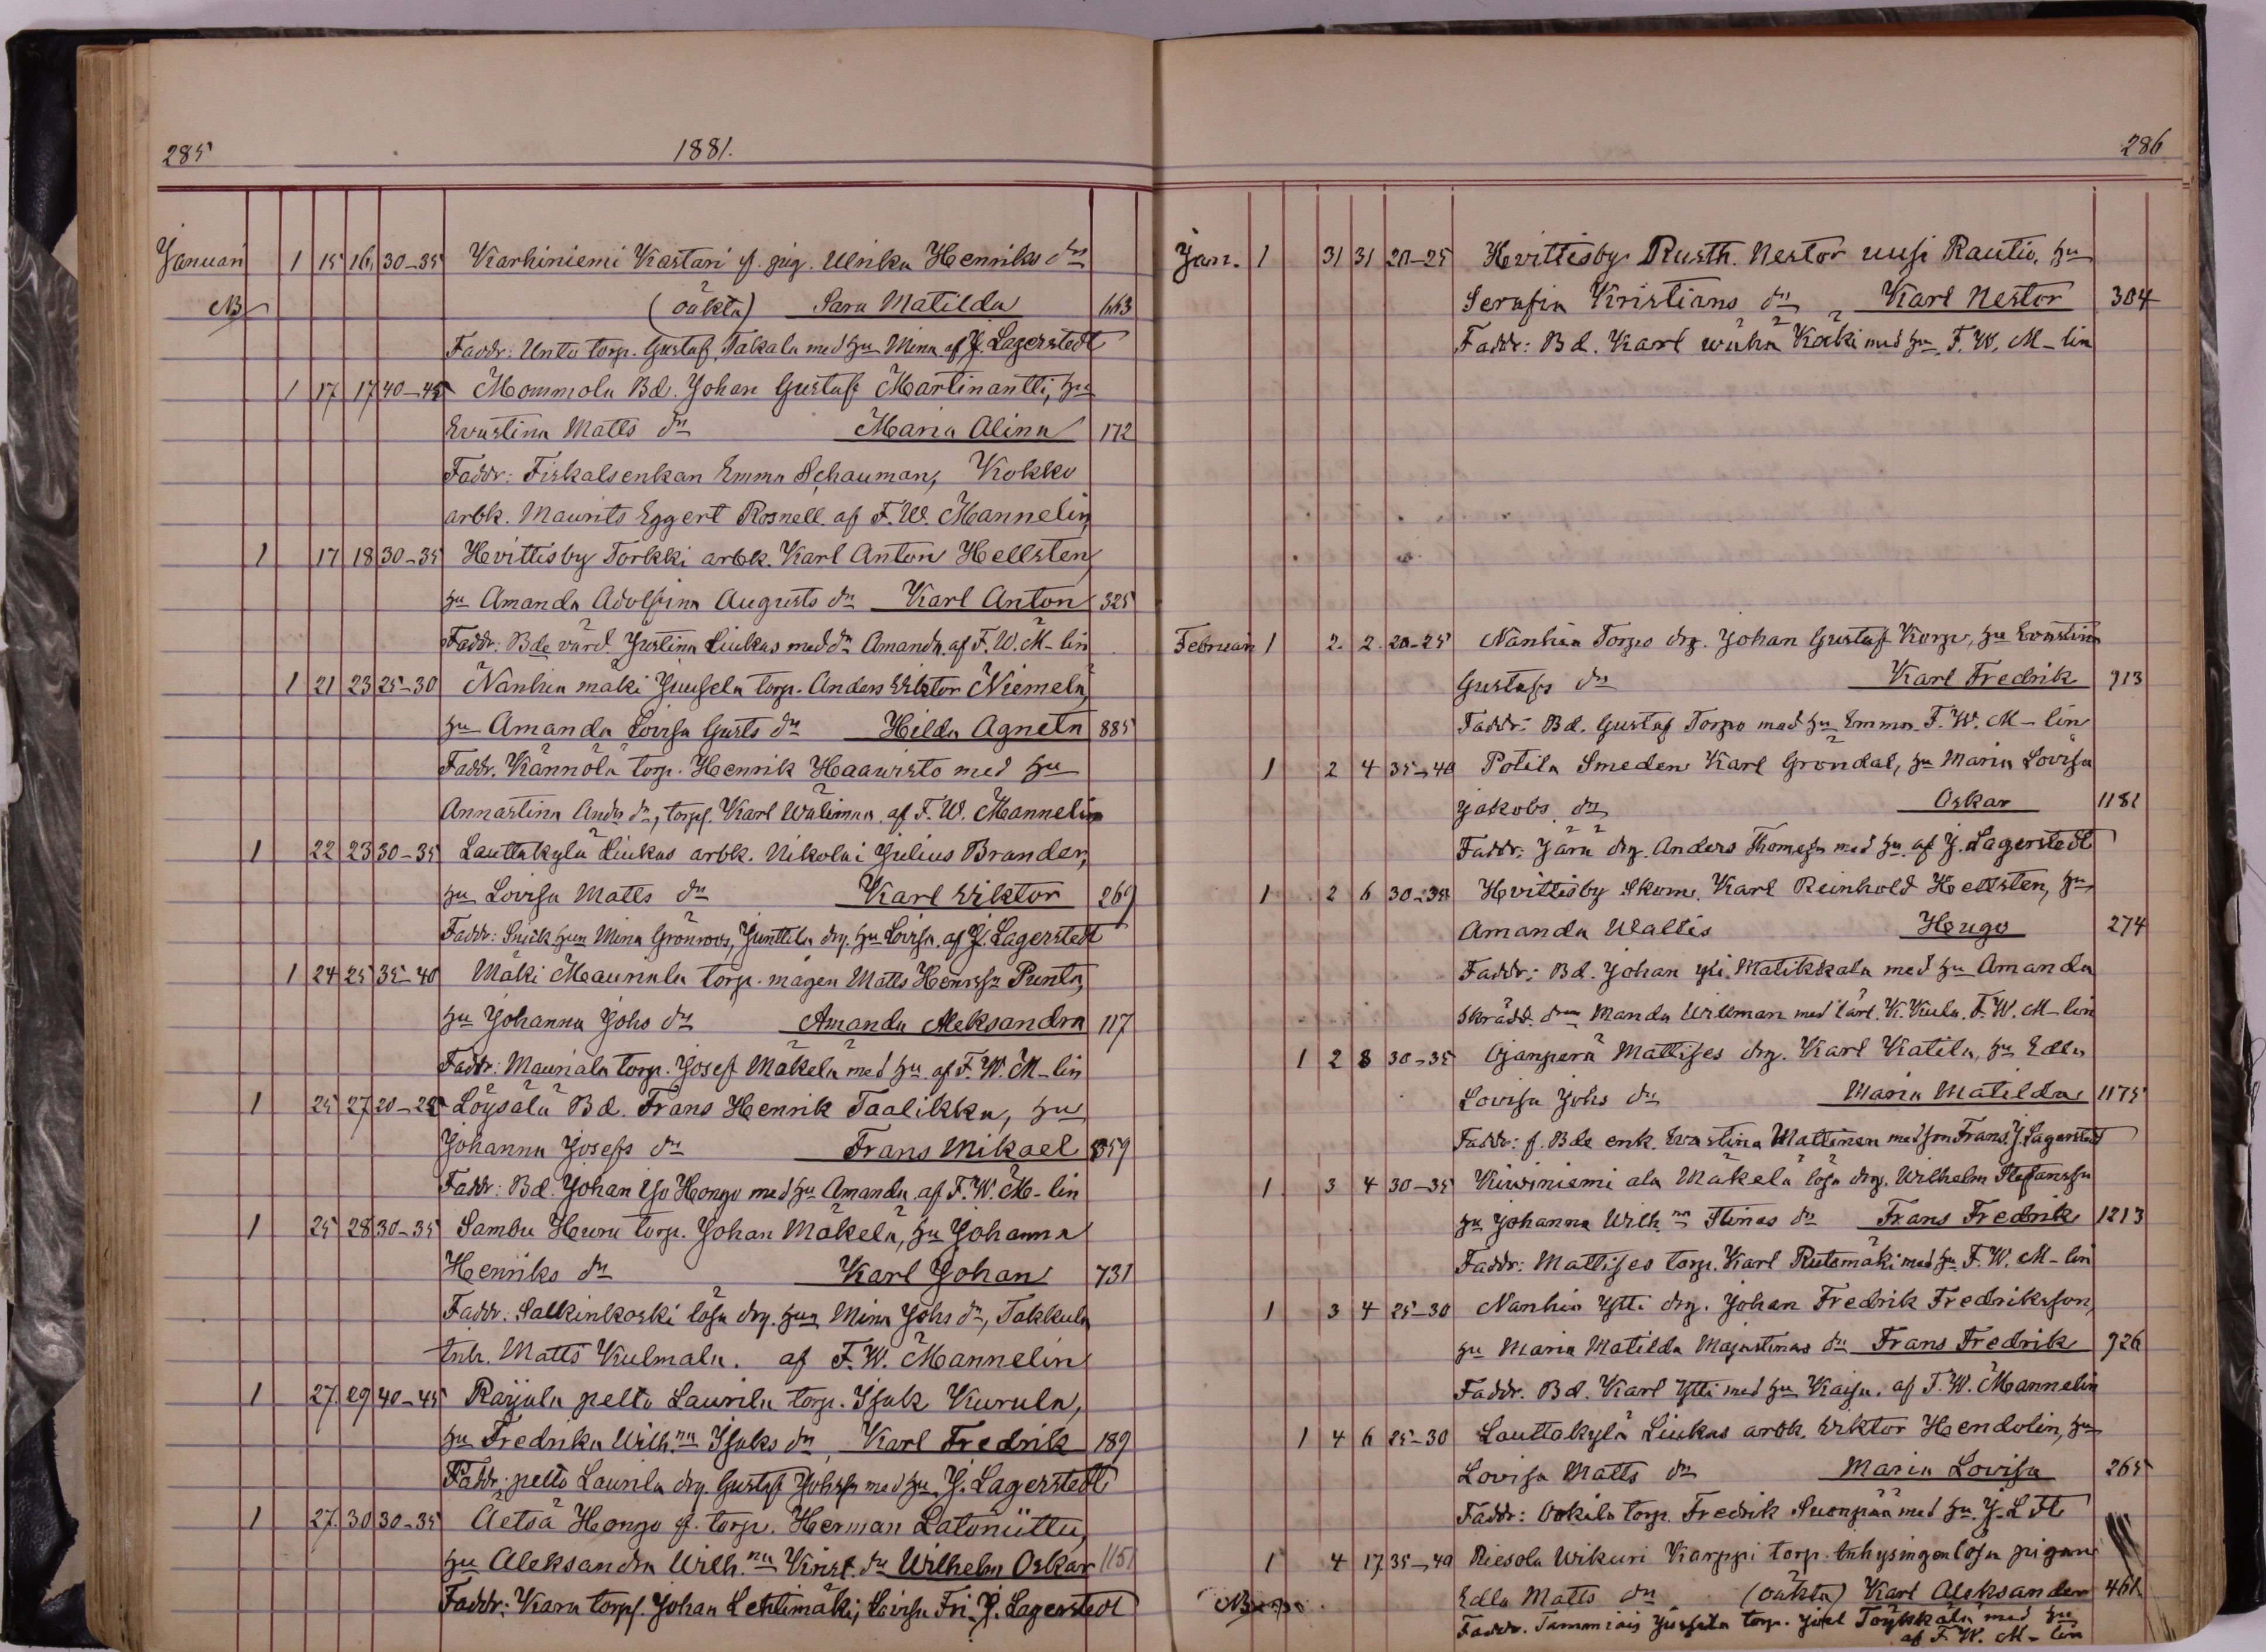 285 1881.
Januari 1 15 16 30-35 Karhiniemi Kastari f. pig. Ulrika Henriks dr
NB (oäkta) Sara Matilda 663
Faddr: Unto torp. Gustaf Takala med hu Mina af J. Lagerstedt
1 17 17 40-45 Mommola Bd. Johan Gustaf Martinantti, hu
Evastina Matts dr Maria Alina 172
Faddr: Fiskalsenkan Emma Schauman, Kokko
arbk. Maurits Eggert Rosnell. af F. W. Mannelin
1 17 18 30-35 Hvittisby Torkki arbk. Karl Anton Hellsten
hu Amanda Adolfina Augusts dr Karl Anton 325
Faddr: Bde värd. Justina Liukas med dr Amanda, af F. W. M-lin
1 21 23 25-30 Nanhia mäki Juusela torp. Anders Viktor Niemelä,
hu Amanda Lovisa Gusts dr Hilda Agneta 885
Faddr. Kännölä torp. Henrik Haavisto med hu
Annastina Anders dr, torpf. Karl Wälimaa. af F. W. Mannelin
1 22 23 30-35 Lauttakylä Liukas arbk. Nikolai Julius Brander,
hu Lovisa Matts dr Karl Viktor 269
Faddr: Snick hun Mina Grönroos, Junttila drg. hu Lovisa, af J. Lagerstedt
1 24 25 35-40 Mäki Mauriala torp. mågen Matts Henrssn Punta,
hu Johanna Johs dr Amanda Aleksandra 117
Faddr: Mauriala torp. Josef Mäkelä med hu af F. W. M-lin
1 25 27 20-25 Löysälä Bd. Frans Henrik Taalikka, hu
Johanna Josefs dr Frans Mikael 859
Faddr: Bd. Johan Iso Hongo med hu Amanda, af F. W. M-lin
1 25 28 30-35 Sambu Heuru torp. Johan Mäkelä, hu Johanna
Henriks dr Karl Johan 731
Faddr: Sallinkoski lösa drg. hun Mina Johs dr, Takkula
inh. Matts Kulmala. af F. W. Mannelin
1 27 29 40-45 Raijala pelto Laurila torp. Isak Kurula,
hu Fredrika Wilh.na Isaks dr Karl Fredrik 189
Faddr: pelto Laurila drg. Gustaf Johssn med hu J. Lagerstedt
1 27 30 30-35 Äetsä Hongo f. torp. Herman Latoniittu,
hu Aleksandra Wilh.na Krist. dr Wilhelm Oskar 1151
Faddr: Karu torpf. Johan Lehtimäki, Lovisa Fri. J. Lagerstedt
286
Jan. 1 31 31 20-25 Hvittisby Rusth. Nestor uusi Rautio, hu
Serafia Kristians dr Karl Nestor 304
Faddr: Bd. Karl wähä Kaki med hu, F. W. M-lin
Februari 1 2 2 20-25 Nanhia Torpo drg. Johan Gustaf Korpi, hu Evastina
Gustafs dr Karl Fredrik 913
Faddr: Bd. Gustaf Torpo med hu Emma. F. W. M-lin
1 2 4 35-40 Potila Smeden Karl Gröndal, hu Maria Lovisa
Jakobs dr Oskar 1181
Faddr: Järä drg. Anders Thomass med hu af J. Lagerstedt
1 2 6 30-35 Hvittisby Skom. Karl Reinhold Hellsten, hu
Amanda Waltis Hugo 274
Faddr: Bd. Johan yli Matikkala med hu Amanda
Skrädd. drn Manda Willman med lärl. K. Kula. F. W. M-lin
1 2 8 30-35 Ojanperä Mattises drg. Karl Katila, hu Edla
Lovisa Johs dr Maria Matilda 1175
Faddr: f. Bde enk. Evastina Mattinen med son Frans, J. Lagerstedt
1 3 4 30-35 Kiviniemi ala Mäkelä lösa drg. Wilhelm Stefansssn
hu Johanna Wilh.na Stinas dr Frans Fredrik 1213
Faddr: Mattises torp. Karl Rutamäki med hu F. W. M-lin
1 3 4 25-30 Nanhia Ytti drg. Johan Fredrik Fredriksson,
hu Maria Matilda Majastinas dr Frans Fredrik 926
Faddr. Bd. Karl Ytti med hu Kaisa. af F. W. Mannelin
1 4 6 25-30 Lauttakylä Liukas arbk. Viktor Hendolin, hu
Lovisa Matts dr Maria Lovisa 265
Faddr: Orkila torp. Fredrik Suonpää med hu. J. L. St
1 4 17 35-40 Riesola Wikuri Karppi torp. inhysingen lösa pigan
NB Edla Matts dr (oäkta) Karl Aleksander 461
Faddr. Tammiais Jussila torp. Joel Töykkälä med hu
af F. W. M-lin